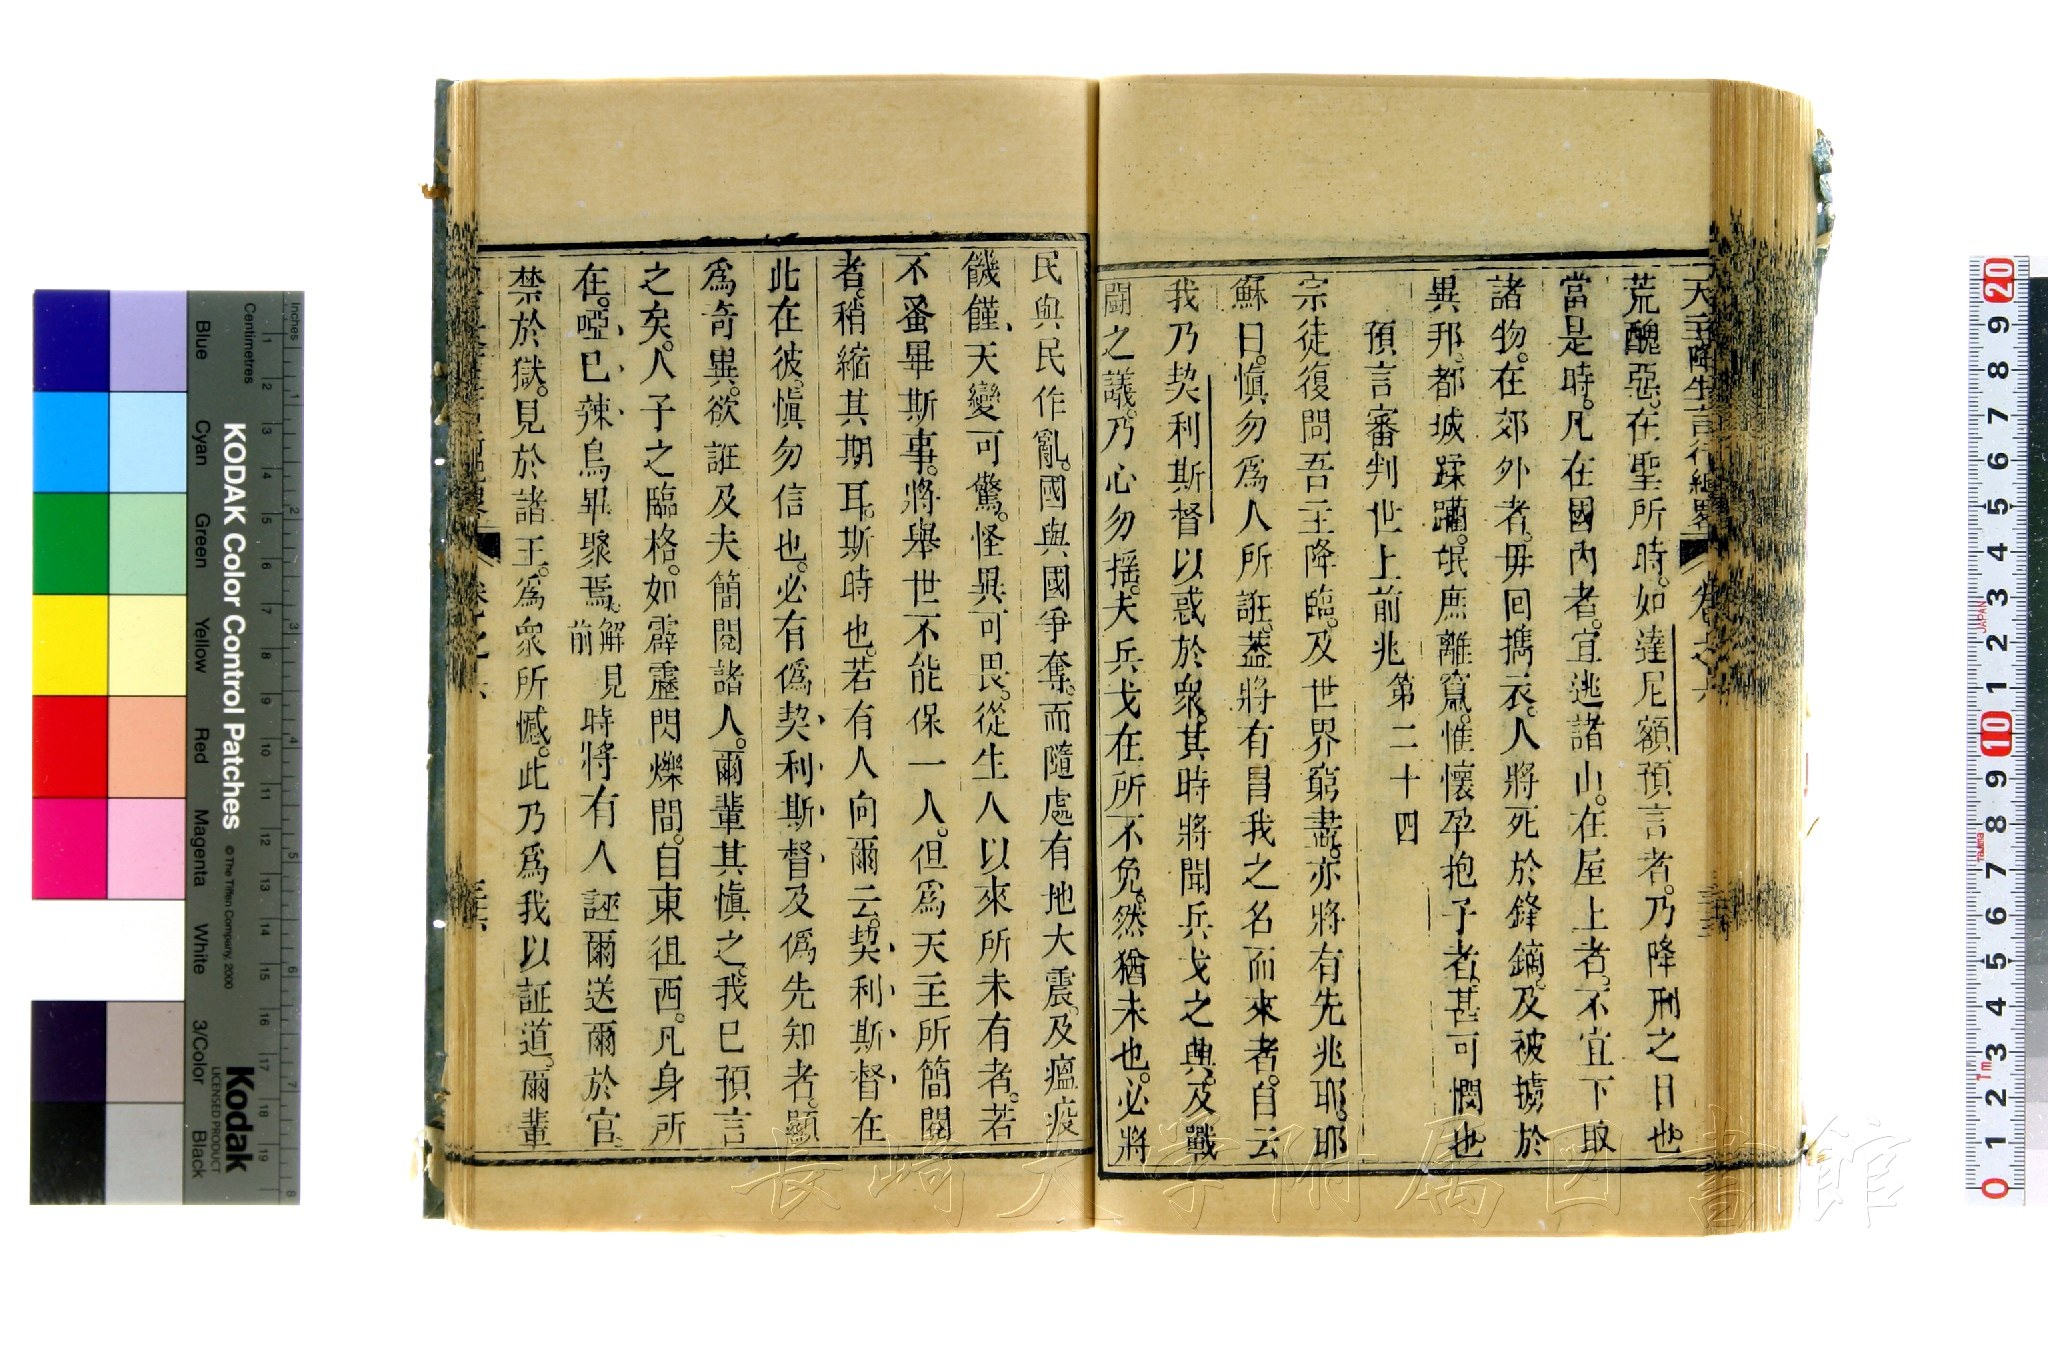 天主降生言行紀畧 卷之六
荒醜惡。在聖所時。如達尼額預言者。乃降刑之日也。
當是時。凡在國內者。宜逃諸山。在屋上者。不宜下取
諸物。在郊外者。毋回攜衣。人將死於鋒鏑。及被擄於
異邦。都城蹂躪。氓庶離窟。惟懷孕抱子者。甚可憫也。
預言審判世上前兆 第二十四
宗徒復問吾主降臨。及世界窮盡。亦將有先兆耶。耶
穌曰。愼勿爲人所誑。蓋將有冒我之名而來者。自云
我乃契利斯督以惑於衆。其時將聞兵戈之興。及戰
鬪之議。乃心勿搖。夫兵戈在所不免。然猶未也。必將
民與民作亂。國與國爭奪。而隨處有地大震。及瘟疫
饑饉、天變可驚。怪異可畏。從生人以來所未有者。若
不蚤畢斯事。將舉世不能保一人。但爲天主所簡閱
者。稍縮其期耳。斯時也。若有人向爾云。契利斯督在
此在彼。愼勿信也。必有僞契利斯督及僞先知者。顯
爲奇異。欲誑及夫簡閱諸人。爾輩其愼之。我已預言
之矣。人子之臨格。如霹靂閃爍間。自東徂西。凡身所
在。啞巳辣鳥畢聚焉。解見前 時將有人誣爾送爾於官。
禁於獄。見於諸王。爲衆所憾。此乃爲我以証道。爾輩
KODAK Color Control Patches
© The Tiffen Company, 2000
Kodak
LICENSED PRODUCT
Inches
Centimetres
Blue
Cyan
Green
Yellow
Red
Magenta
White
3/Color
Black
JAPAN
長崎大学附属図書館